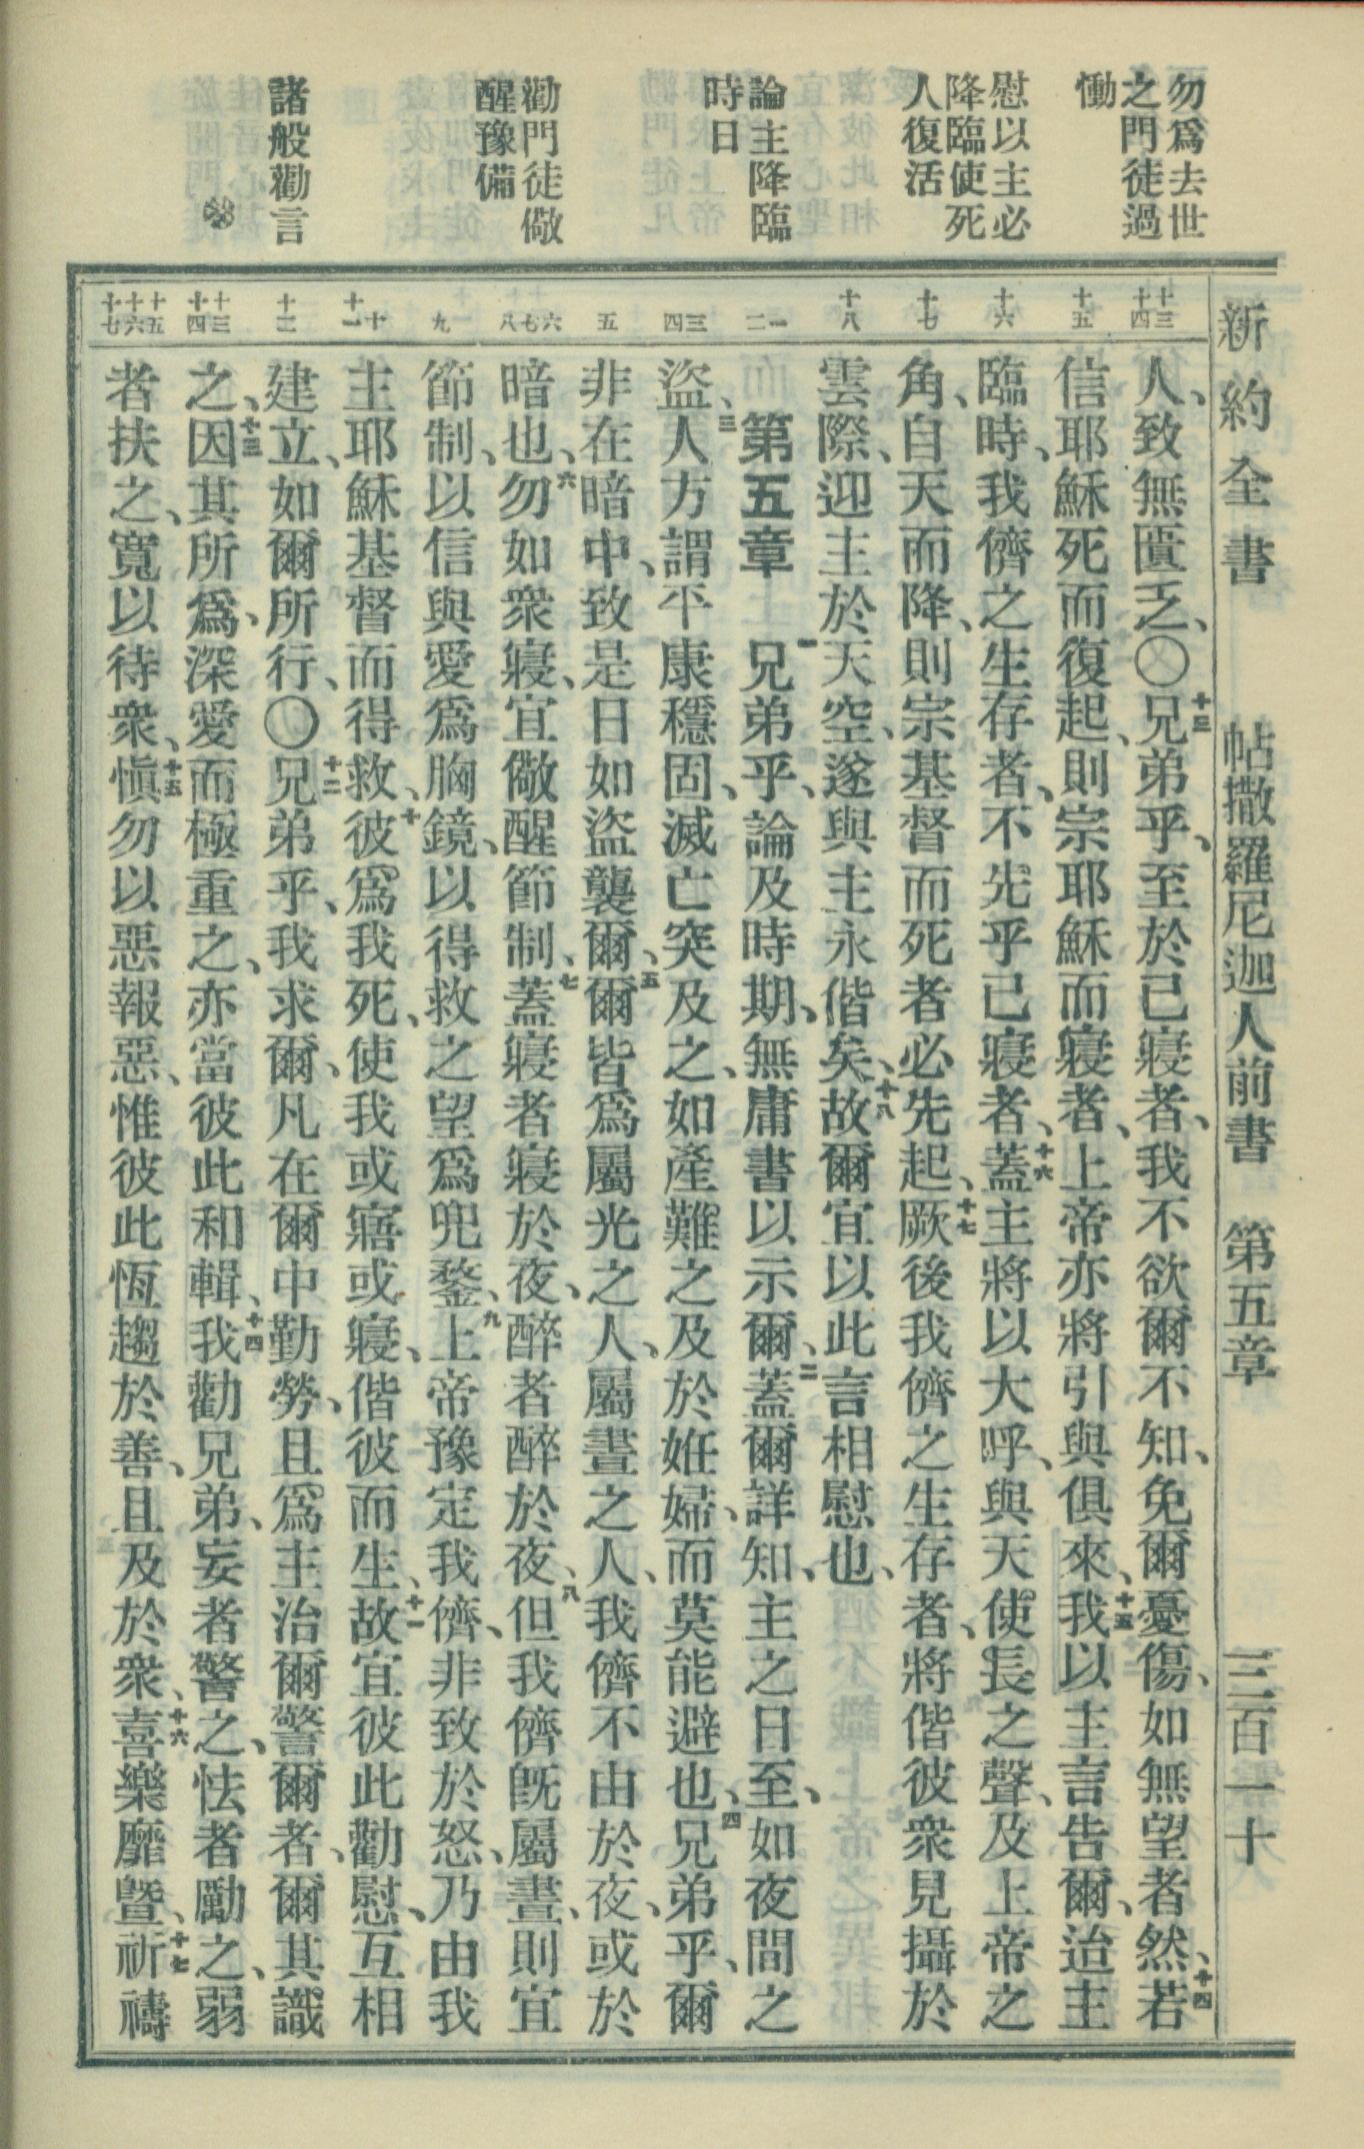 新約全書　帖撒羅尼迦人前書　第五章　三百一十
勿爲去世
之門徒過
慟
慰以主必
降臨使死
人復活
論主降臨
時日
勸門徒儆
醒豫備
諸般勸言
十三
十四
十五
十六
十七
十八
一
二
三
四
五
六
七
八
九
十
十一
十二
十三
十四
十五
十六
十七
人、致無匱乏、〇十三兄弟乎、至於已寢者、我不欲爾不知、免爾憂傷、如無望者然、十四若
信耶穌死而復起、則宗耶穌而寢者、上帝亦將引與俱來、十五我以主言告爾、迨主
臨時、我儕之生存者、不先乎已寢者、十六蓋主將以大呼、與天使長之聲、及上帝之
角、自天而降、則宗基督而死者必先起、十七厥後我儕之生存者、將偕彼衆見攝於
雲際、迎主於天空、遂與主永偕矣、十八故爾宜以此言相慰也、
第五章　一兄弟乎、論及時期、無庸書以示爾、二蓋爾詳知、主之日至、如夜間之
盜、三人方謂平康穩固、滅亡突及之、如產難之及於姙婦、而莫能避也、四兄弟乎、爾
非在暗中、致是日如盜襲爾、五爾皆爲屬光之人、屬晝之人、我儕不由於夜、或於
暗也、六勿如衆寢、宜儆醒節制、七蓋寢者寢於夜、醉者醉於夜、八但我儕旣屬晝、則宜
節制、以信與愛爲胸鏡、以得救之望爲兜鍪、九上帝豫定我儕、非致於怒、乃由我
主耶穌基督而得救、十彼爲我死、使我或寤或寢、偕彼而生、十一故宜彼此勸慰、互相
建立、如爾所行、〇十二兄弟乎、我求爾、凡在爾中勤勞、且爲主治爾警爾者、爾其識
之、十三因其所爲、深愛而極重之、亦當彼此和輯、十四我勸兄弟、妄者警之、怯者勵之、弱
者扶之、寬以待衆、十五愼勿以惡報惡、惟彼此恆趨於善、且及於衆、十六喜樂靡曁、十七祈禱